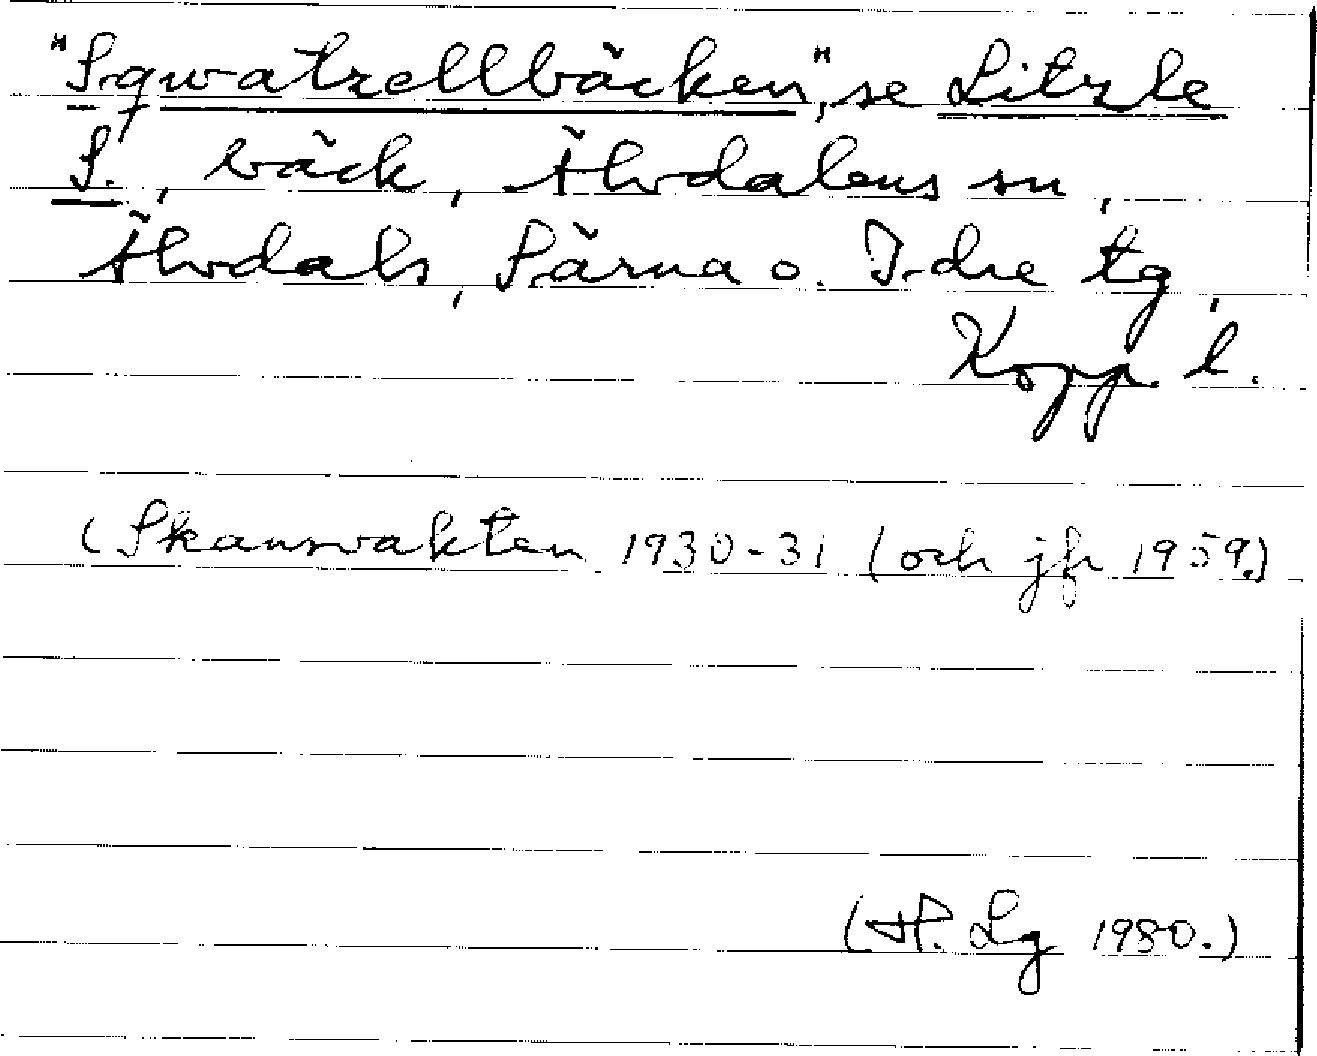 "Sqwatzellbäcken", se Litzle
S., bäck, Älvdalens sn,
Älvdals, Särna o. Idre tg,
Kopp. l.
(Skansvakten 1930-31 (och jfr 1959.)
(H. Lg 1980.)